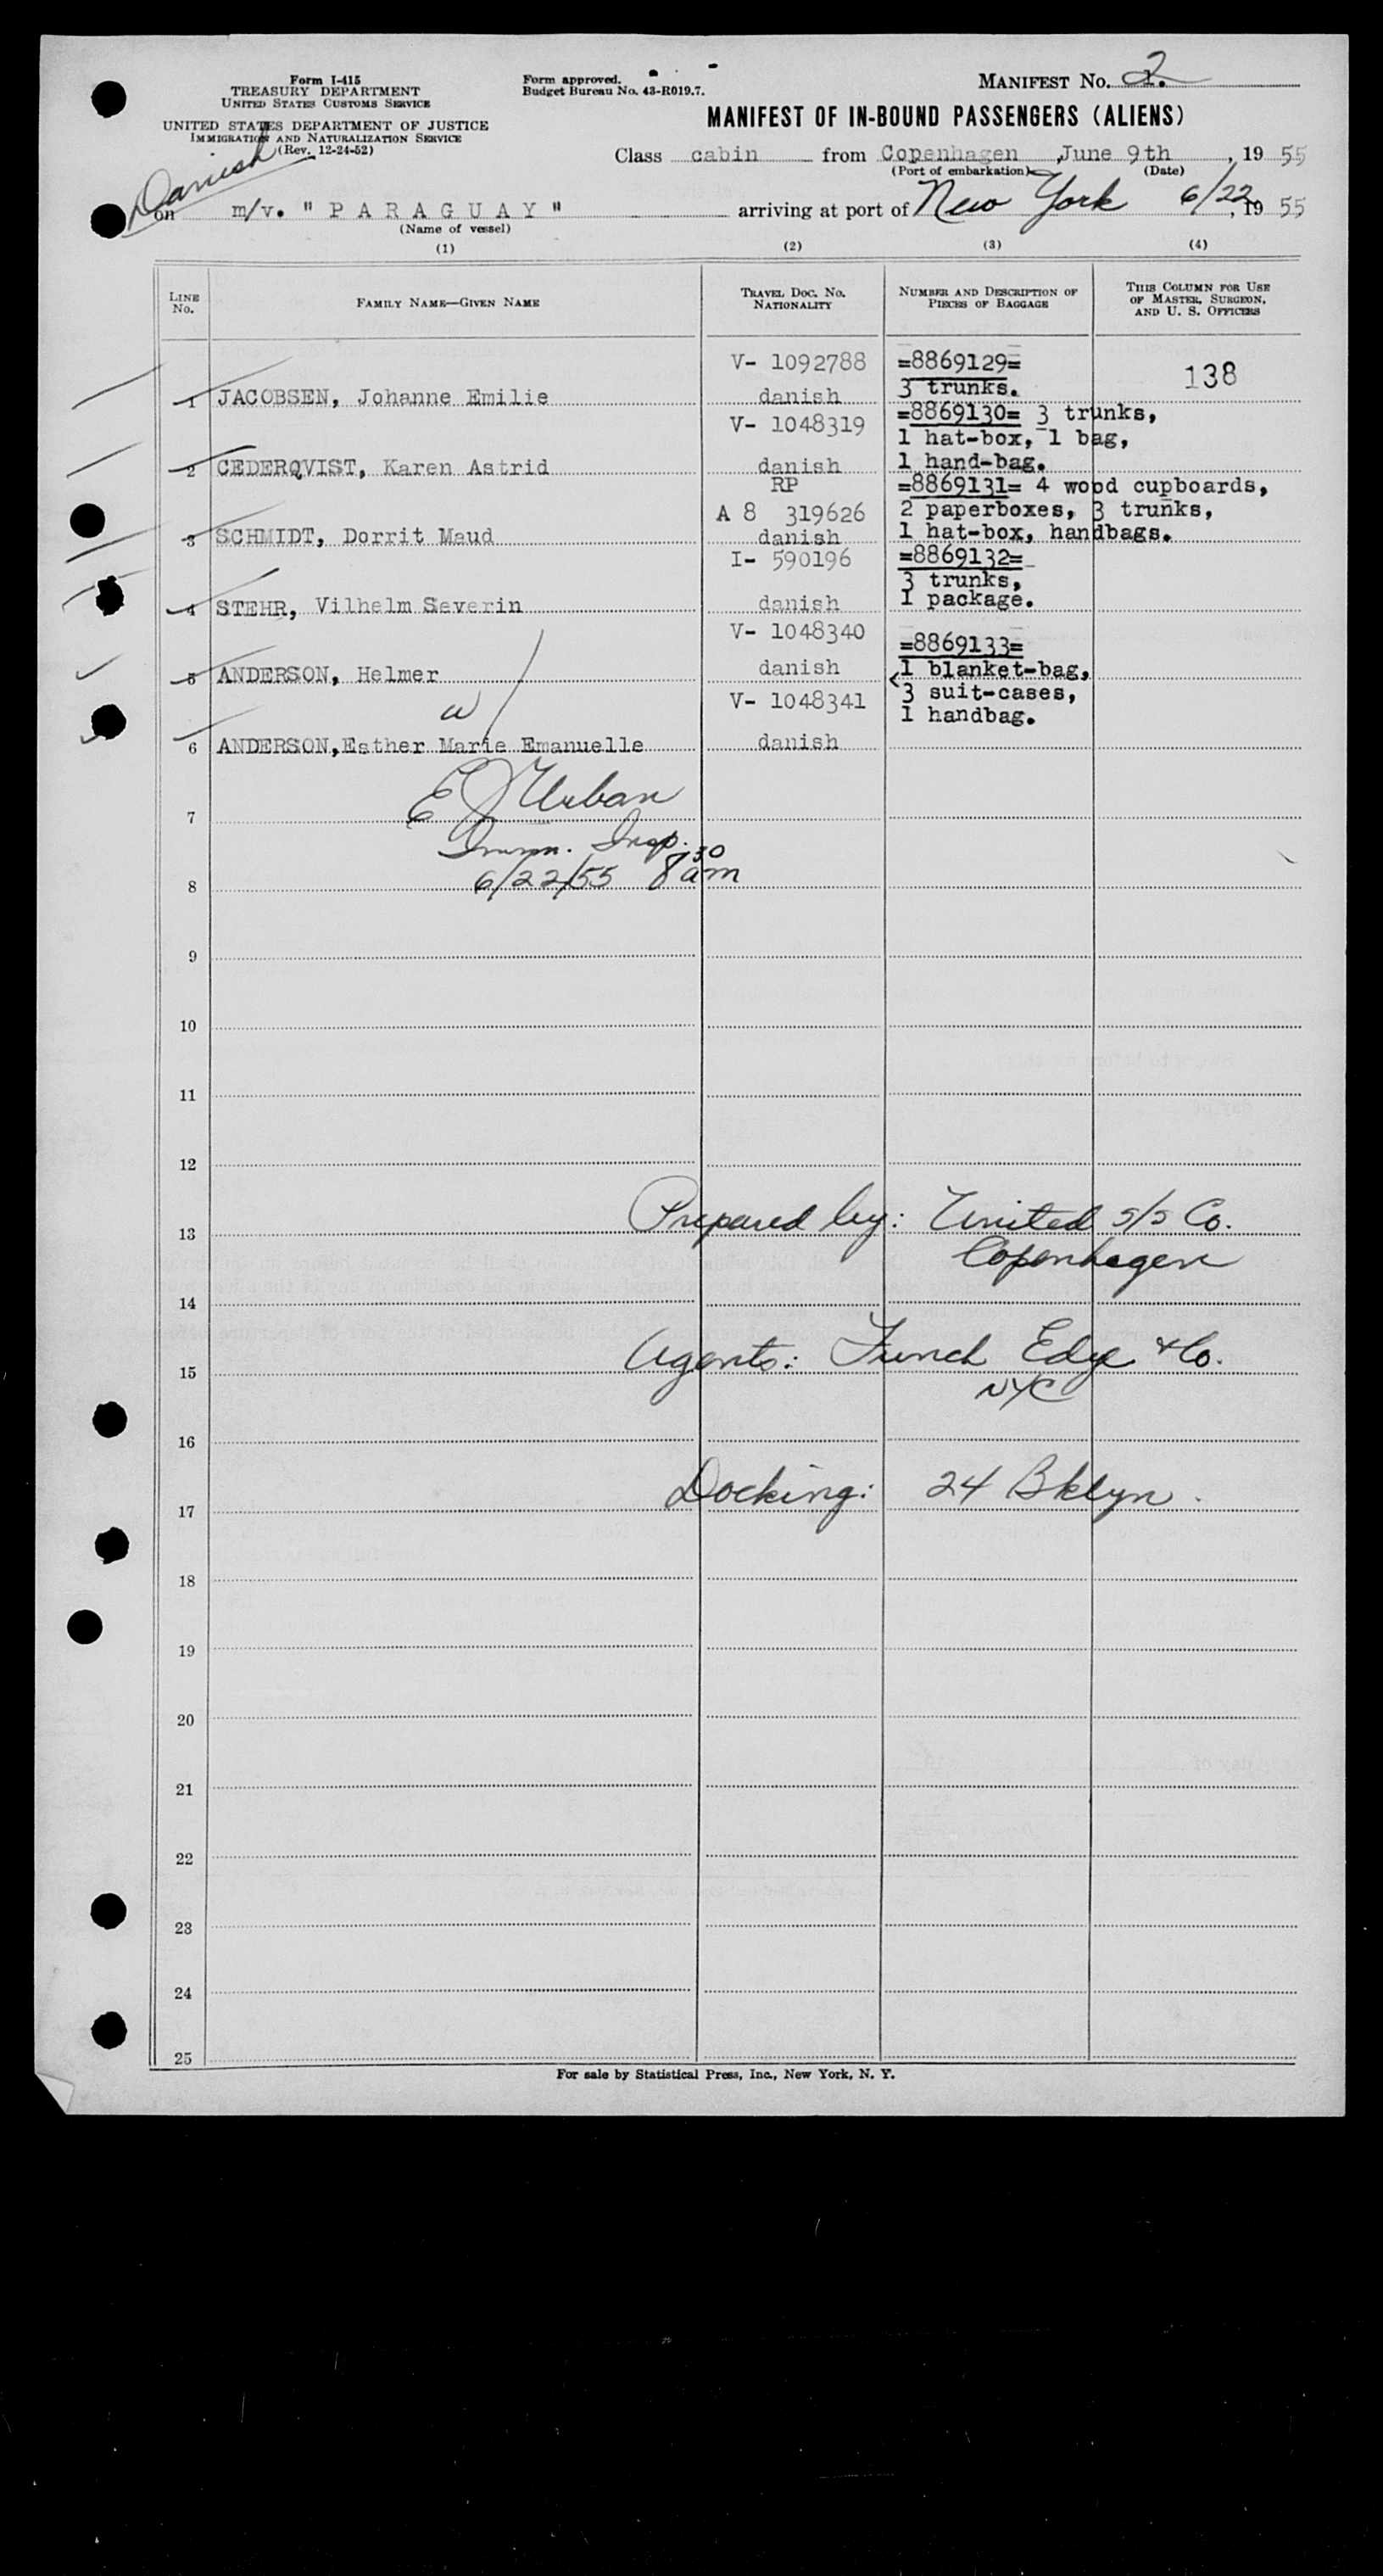 Form I-415
TREASURY DEPARTMENT
UNITED STATES CUSTOMS SERVICE
UNITED STATES DEPARTMENT OF JUSTICE
IMMIGRATION AND NATURALIZATION SERVICE
(Rev. 12-24-52)
Form approved.
Budget Bureau No. 43-R019.7.
MANIFEST No. 2
MANIFEST OF IN-BOUND PASSENGERS (ALIENS)
Class cabin from Copenhagen, June 9th, 19 55
(Port of embarkation) (Date)
Danish
on m/v. " P A R A G U A Y " arriving at port of New York 6/22, 19 55
(Name of vessel)
(1) (2) (3) (4)
LINE No. FAMILY NAME—GIVEN NAME TRAVEL DOC. No. NATIONALITY NUMBER AND DESCRIPTION OF PIECES OF BAGGAGE THIS COLUMN FOR USE OF MASTER, SURGEON, AND U. S. OFFICERS
V- 1092788 =8869129= 138
1 JACOBSEN, Johanne Emilie danish 3 trunks.
V- 1048319 =8869130= 3 trunks,
1 hat-box, 1 bag,
2 CEDERQVIST, Karen Astrid danish 1 hand-bag.
RP =8869131= 4 wood cupboards,
A 8 319626 2 paperboxes, 3 trunks,
3 SCHMIDT, Dorrit Maud danish 1 hat-box, handbags.
I- 590196 =8869132=
3 trunks,
4 STEHR, Vilhelm Severin danish 1 package.
V- 1048340 =8869133=
5 ANDERSON, Helmer danish 1 blanket-bag,
w V- 1048341 3 suit-cases,
1 handbag.
6 ANDERSON, Esther Marie Emanuelle danish
E J Urban
7
Immn. Insp.
8 6/22/55 8 30 am
9
10
11
12
13 Prepared by: United S/S Co.
Copenhagen
14
15 Agents: Funch Edye & Co.
NYC
16
17 Docking: 24 Bklyn.
18
19
20
21
22
23
24
25
For sale by Statistical Press, Inc., New York, N. Y.